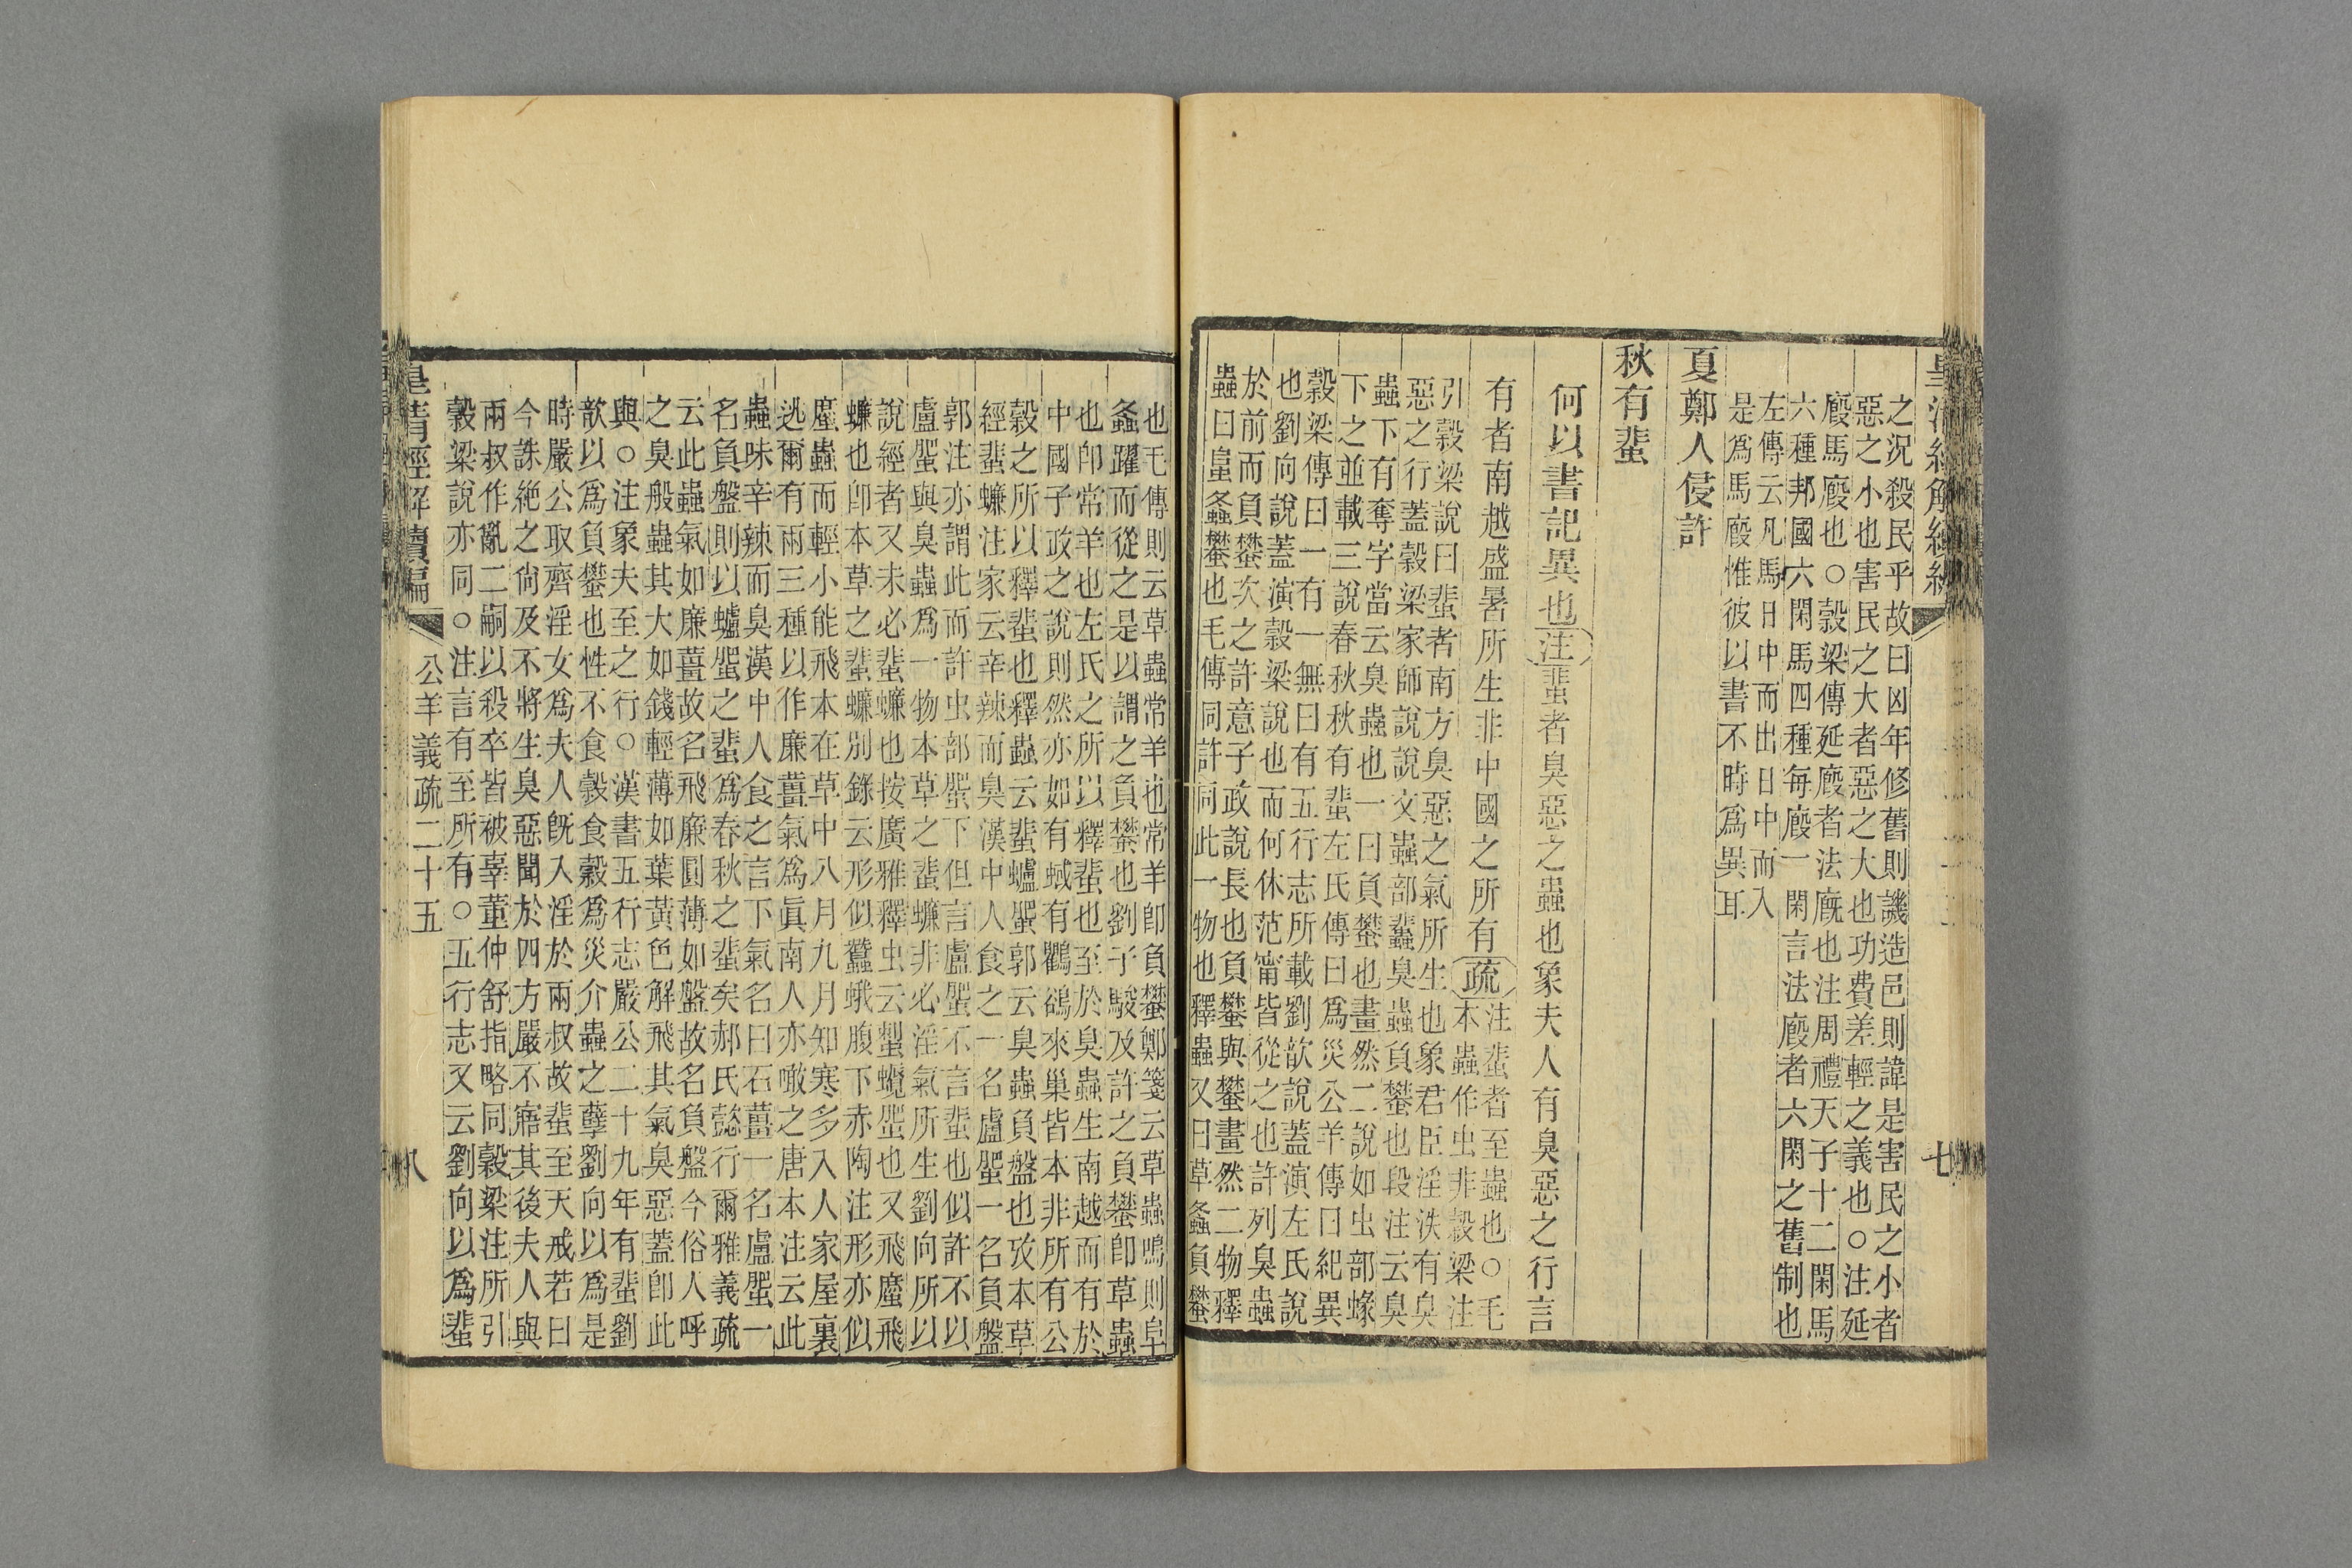 之況殺民乎故曰凶年修舊則譏造邑則諱是害民之小者
惡之小也害民之大者惡之大也功費差輕之義也○注延
廄馬廄也○穀梁傳延廄者法廐也注周禮天子十二閑馬
六種邦國六閑馬四種每廄一閑言法廄者六閑之舊制也
左傳云凡馬日中而出日中而入
是爲馬廄惟彼以書不時爲異耳
夏鄭人侵許
秋有蜚
何以書記異也注蜚者臭惡之蟲也象夫人有臭惡之行言
有者南越盛暑所生非中國之所有疏
注蜚者至蟲也○毛
本蟲作虫非穀梁注
引穀梁說曰蜚者南方臭惡之氣所生也象君臣淫泆有臭
惡之行蓋穀梁家師說說文蟲部蠹臭蟲負蠜也段注云臭
蟲下有奪字當云臭蟲也一曰負蠜也畫然二說如虫部蝝
下之並載三說春秋秋有蜚左氏傳曰爲災公羊傳曰紀異
穀梁傳曰一有一無曰有五行志所載劉歆說蓋演左氏說
也劉向說蓋演穀梁說也而何休范甯皆從之也許列臭蟲
於前而負蠜次之許意子政說長也負蠜與蠜畫然二物釋
蟲曰𨸏螽蠜也毛傳同許同此一物也釋蟲又曰草螽負蠜
也毛傳則云草蟲常羊也常羊卽負蠜鄭箋云草蟲鳴則阜
螽躍而從之是以謂之負蠜也劉子駿及許之負蠜卽草蟲
也卽常羊也左氏之所以釋蜚也至於臭蟲生南越而有於
中國子政之說則然亦如有蜮有鸜鵒來巢皆本非所有公
穀之所以釋蜚也釋蟲云蜚蠦蜰郭云臭蟲負盤也攷本草
經蜚蠊注家云辛辣而臭漢中人食之一名盧蜰一名負盤
郭注亦謂此而許虫部蜰下但言盧蜰不言蜚也似許不以
盧蜰與臭蟲爲一物本草之蜚蠊非必淫氣所生劉向所以
說經者又未必蜚蠊也按廣雅釋虫云䗤蠅蜰也又飛蟅飛
蠊也卽本草之蜚蠊別錄云形似蠶蛾腹下赤陶注形亦似
蟅蟲而輕小能飛本在草中八月九月知寒多入人家屋裏
逃爾有兩三種以作廉薑氣爲眞南人亦噉之唐本注云此
蟲味辛辣而臭漢中人食之言下氣名曰石薑一名盧蜰一
名負盤則以蠦蜰之蜚爲春秋之蜚矣郝氏懿行爾雅義疏
云此蟲氣如廉薑故名飛廉圓薄如盤故名負盤今俗人呼
之臭般蟲其大如錢輕薄如葉黃色解飛其氣臭惡蓋卽此
與○注象夫至之行○漢書五行志嚴公二十九年有蜚劉
歆以爲負蠜也性不食穀食穀爲災介蟲之孽劉向以爲是
時嚴公取齊淫女爲夫人旣入淫於兩叔故蜚至天戒若曰
今誅絕之尙及不將生臭惡聞於四方嚴不寤其後夫人與
兩叔作亂二嗣以殺卒皆被辜董仲舒指略同穀梁注所引
穀梁說亦同○注言有至所有○五行志又云劉向以爲蜚
皇清經解續編
公羊義疏二十五
八
七